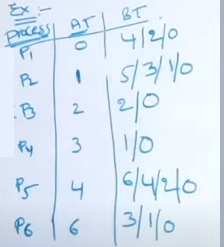 Ex:
Process AT BT
P1 0 4/2/0
P2 1 5/3/1/0
P3 2 2/0
P4 3 1/0
P5 4 6/4/2/0
P6 6 3/1/0